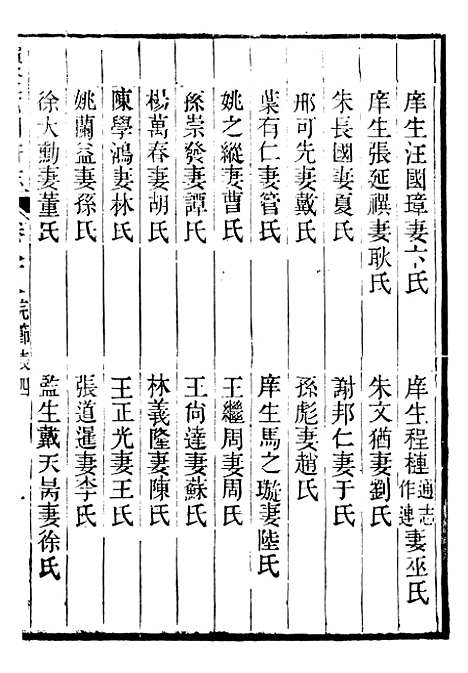 庠生汪國璋妻方氏
庠生程𣖕通志作連妻巫氏
庠生張延禩妻耿氏
朱文猶妻劉氏
朱長國妻夏氏
謝邦仁妻于氏
邢可先妻戴氏
孫彪妻趙氏
葉有仁妻管氏
庠生馬之璇妻陸氏
姚之縱妻曹氏
王繼周妻周氏
孫崇發妻譚氏
王尙達妻蘇氏
楊萬春妻胡氏
林義隆妻陳氏
陳學鴻妻林氏
王正光妻王氏
姚蘭益妻孫氏
張道暹妻李氏
徐大勳妻董氏
監生戴天昺妻徐氏
皖節表四